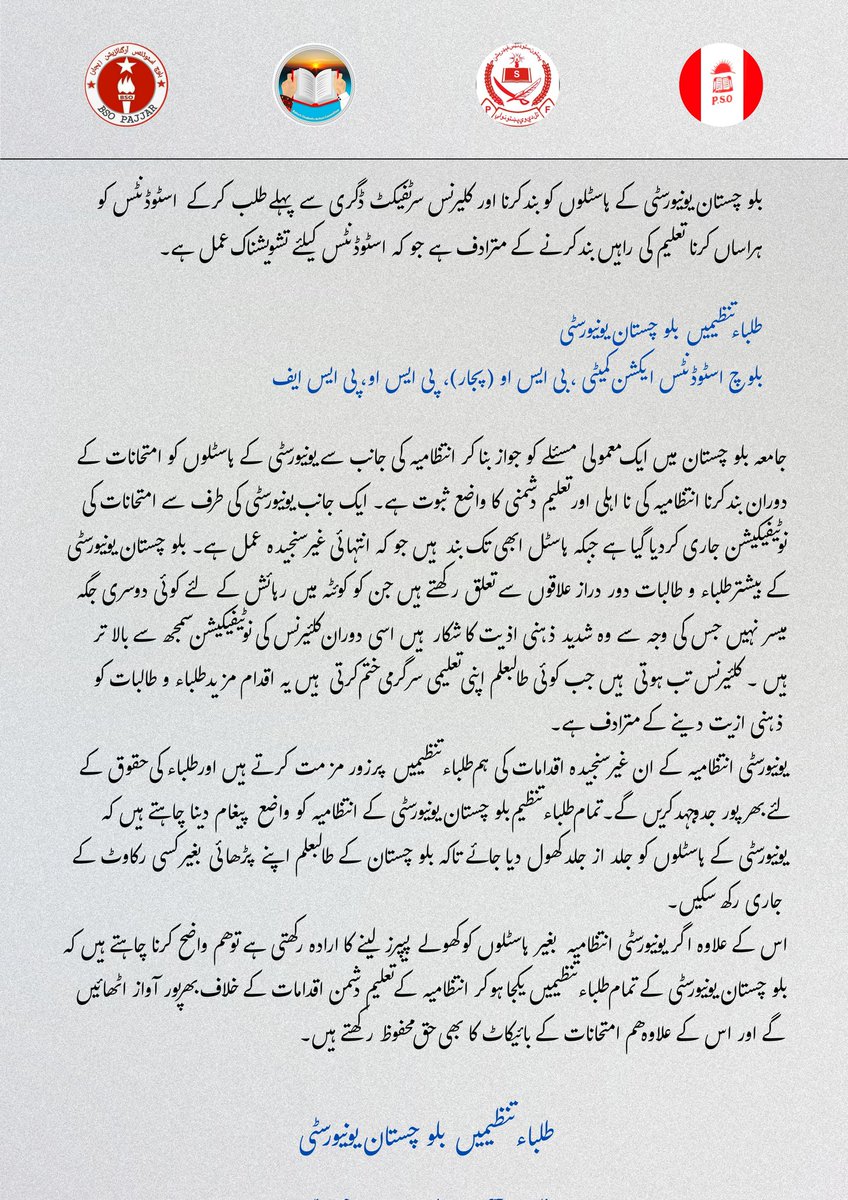 BSO PAJJAR
BSO
S
P
F
P.S.O
بلوچستان یونیورسٹی کے ہاسٹلوں کو بند کرنا اور کلیرنس سرٹفیکٹ ڈگری سے پہلے طلب کرکے اسٹوڈنٹس کو
ہراساں کرنا تعلیم کی راہیں بند کرنے کے مترادف ہے جو کہ اسٹوڈنٹس کیلئے تشویشناک عمل ہے۔
طلباء تنظیمیں بلوچستان یونیورسٹی
بلوچ اسٹوڈنٹس ایکشن کمیٹی ، بی ایس او (پجار)، پی ایس او، پی ایس ایف
جامعہ بلوچستان میں ایک معمولی مسئلے کو جواز بنا کر انتظامیہ کی جانب سے یونیورسٹی کے ہاسٹلوں کو امتحانات کے
دوران بند کرنا انتظامیہ کی نا اہلی اور تعلیم دشمنی کا واضع ثبوت ہے۔ ایک جانب یونیورسٹی کی طرف سے امتحانات کی
نوٹیفیکیشن جاری کردیا گیا ہے جبکہ ہاسٹل ابھی تک بند ہیں جو کہ انتہائی غیر سنجیدہ عمل ہے۔ بلوچستان یونیورسٹی
کے بیشتر طلباء و طالبات دور دراز علاقوں سے تعلق رکھتے ہیں جن کو کوئٹہ میں رہائش کے لئے کوئی دوسری جگہ
میسر نہیں جس کی وجہ سے وہ شدید ذہنی اذیت کا شکار ہیں اسی دوران کلئیرنس کی نوٹیفیکیشن سمجھ سے بالا تر
ہیں ۔ کلئیرنس تب ہوتی ہیں جب کوئی طالبعلم اپنی تعلیمی سرگرمی ختم کرتی ہیں یہ اقدام مزید طلباء و طالبات کو
ذہنی ازیت دینے کے مترادف ہے۔
یونیورسٹی انتظامیہ کے ان غیر سنجیدہ اقدامات کی ہم طلباء تنظیمیں پرزور مزمت کرتے ہیں اور طلباء کی حقوق کے
لئے بھرپور جدوجہد کریں گے۔ تمام طلباء تنظیم بلوچستان یونیورسٹی کے انتظامیہ کو واضع پیغام دینا چاہتے ہیں کہ
یونیورسٹی کے ہاسٹلوں کو جلد از جلد کھول دیا جائے تاکہ بلوچستان کے طالبعلم اپنے پڑھائی بغیر کسی رکاوٹ کے
جاری رکھ سکیں۔
اس کے علاوہ اگر یونیورسٹی انتظامیہ بغیر ہاسٹلوں کو کھولے پیپرز لینے کا ارادہ رکھتی ہے تو ھم واضح کرنا چاہتے ہیں کہ
بلوچستان یونیورسٹی کے تمام طلباء تنظیمیں یکجا ہوکر انتظامیہ کے تعلیم دشمن اقدامات کے خلاف بھرپور آواز اٹھائیں
گے اور اس کے علاوہ ھم امتحانات کے بائیکاٹ کا بھی حق محفوظ رکھتے ہیں۔
طلباء تنظیمیں بلوچستان یونیورسٹی